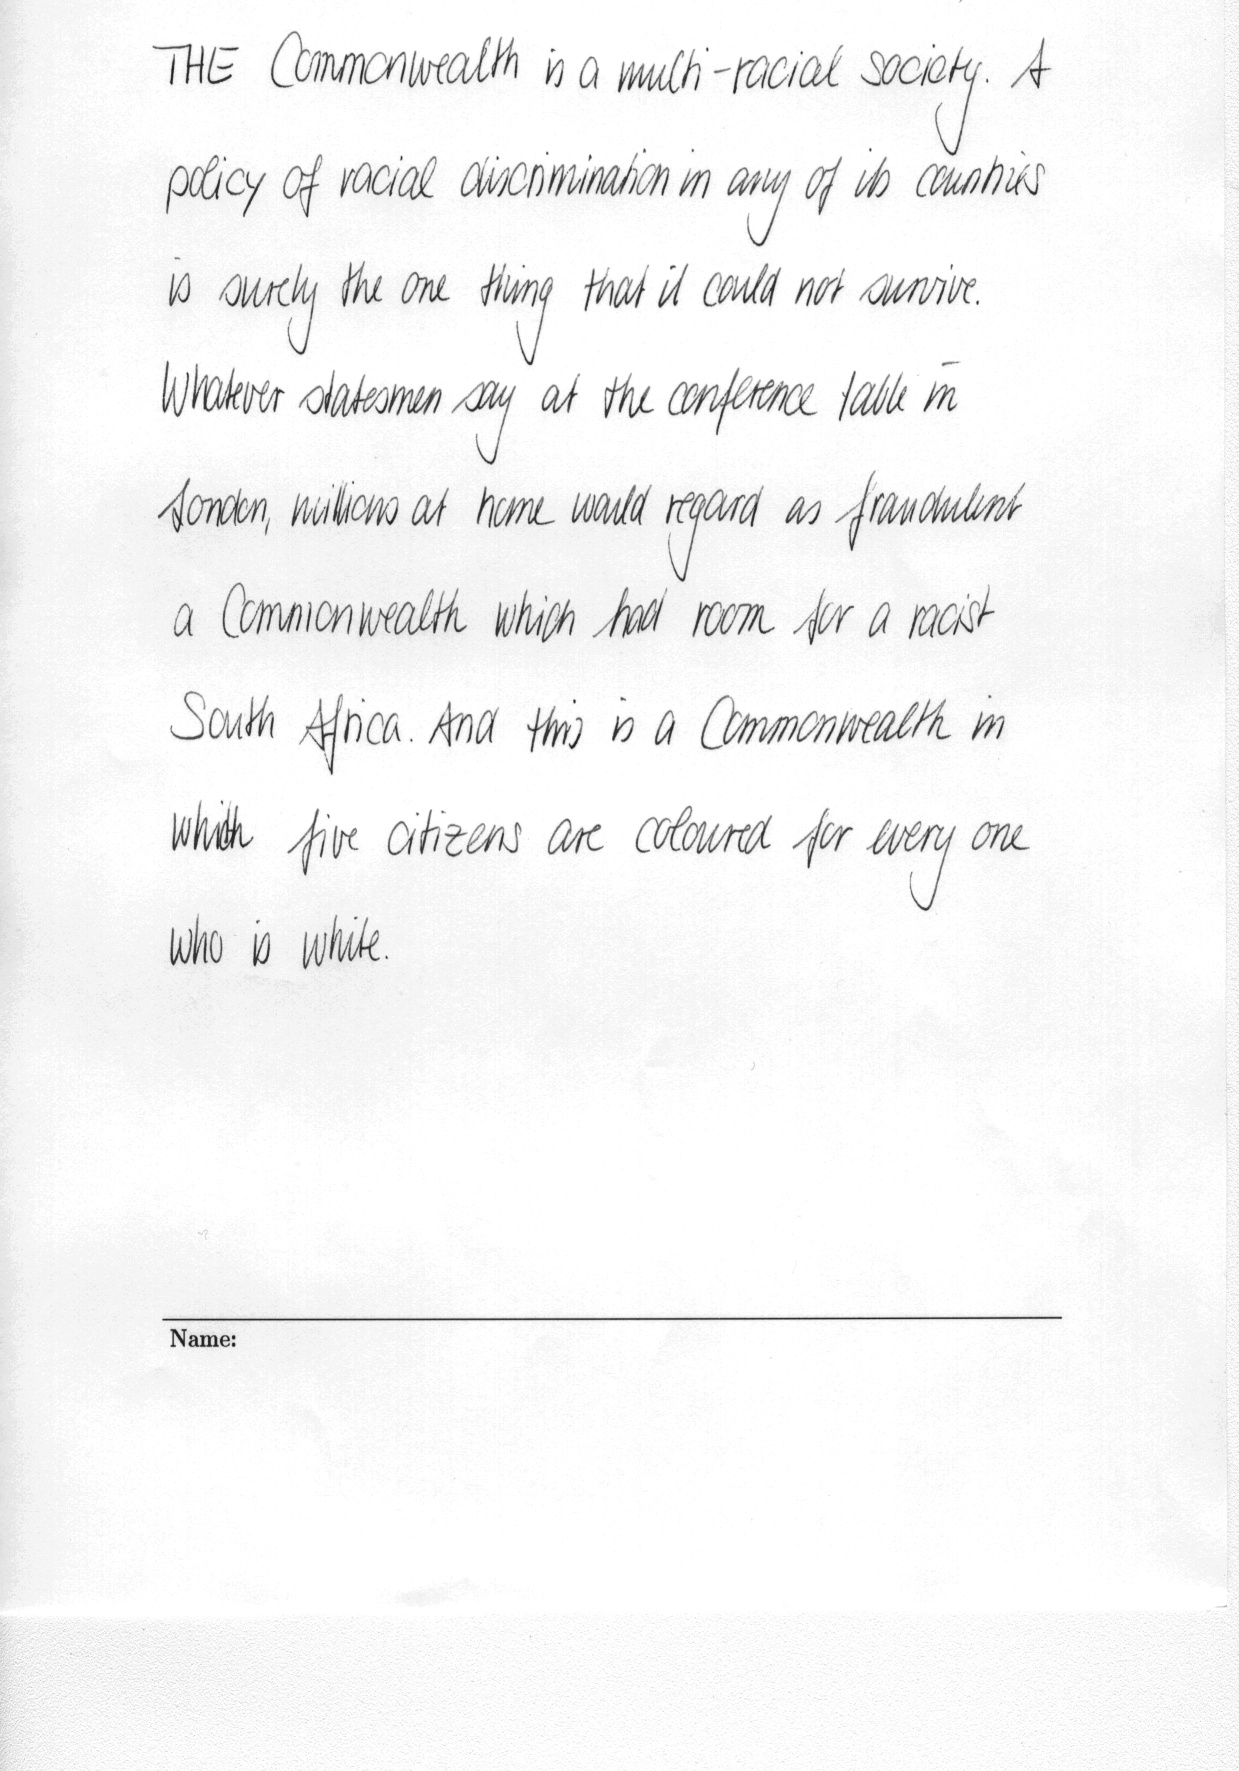 THE Commonwealth is a multi-racial society. A
policy of racial discrimination in any of its countries
is surely the one thing that it could not survive.
Whatever statesmen say at the conference table in
London, millions at home would regard as fraudulent
a Commonwealth which had room for a racist
South Africa. And this is a Commonwealth in
which five citizens are coloured for every one
who is white.
Name: